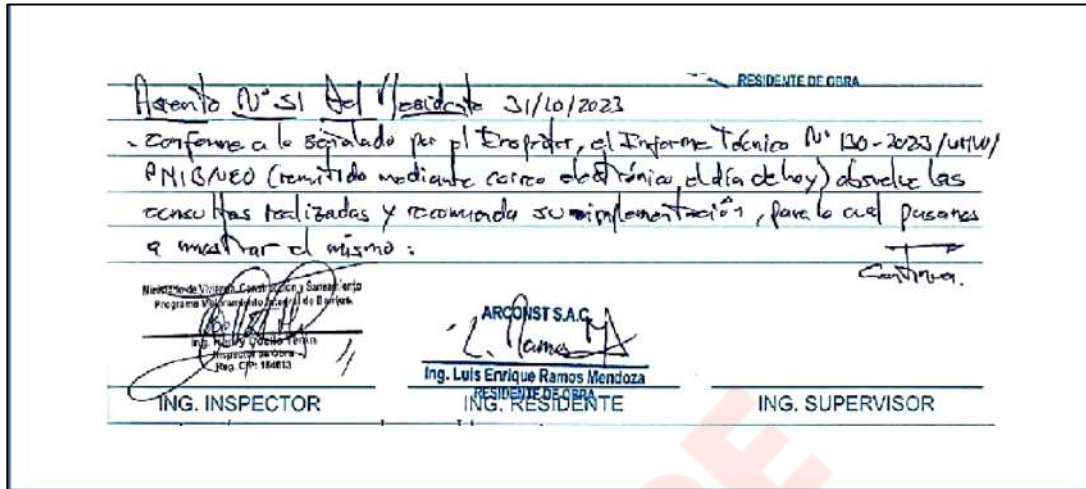 RESIDENTE DE OBRA
Asiento N° 51 Del Residente 31/10/2023
- Conforme a lo señalado por el Inspector, el Informe Técnico N° 130-2023/
PMIB/NEO (remitido mediante correo electrónico, el día de hoy) absuelve las
consultas realizadas y recomienda su implementación, para lo cual pasamos
a mostrar el mismo:
Continua.
Ministerio de Vivienda, Construcción y Saneamiento
Programa Mejoramiento Integral de Barrios
Ing.
Inspector de Obra
Reg. CIP:
ARCONST S.A.C.
Ing. Luis Enrique Ramos Mendoza
RESIDENTE DE OBRA
ING. INSPECTOR ING. RESIDENTE ING. SUPERVISOR